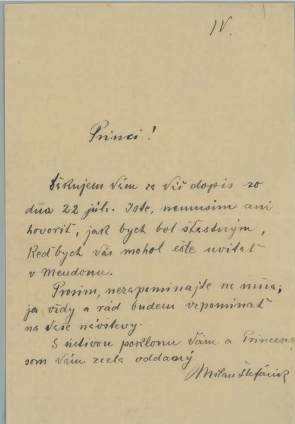 IV.
Princi!
Ďakujem Vám za Váš dopis zo
dňa 22 júli. Iste, nemusím ani
hovoriť, jak bych bol šťastným,
Keď bych Vás mohol ešte uvítať
v Meudonu.
Prosím, nezapomínajte na mňa;
ja vždy a rád budem vzpomínať
na Vaše návštevy.
S úctivou poklonou Vám a Princezne
som Vám zcela oddaný
Milan Štefánik